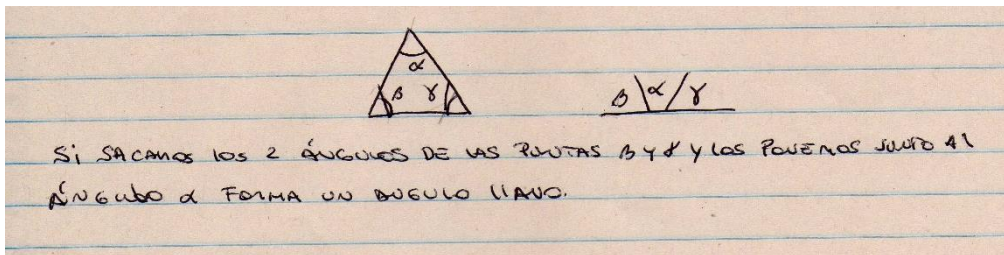 α
β γ
β \ α / γ
Si SACAMOS los 2 ÁNGULOS DE LAS PUNTAS β y γ y los PONEMOS JUNTO Al
ÁNGULO α FORMA UN ANGULO llANO.